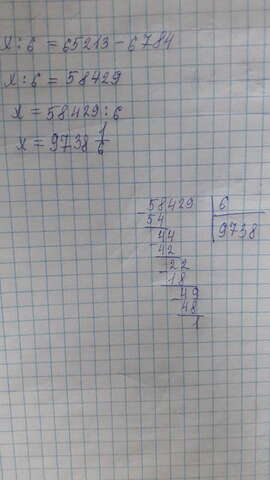 x : 6 = 65213 - 6784
x : 6 = 58429
x = 58429 : 6
x = 9738 1/6
58429 | 6
- 54 | 9738
44
- 42
22
- 18
49
- 48
1